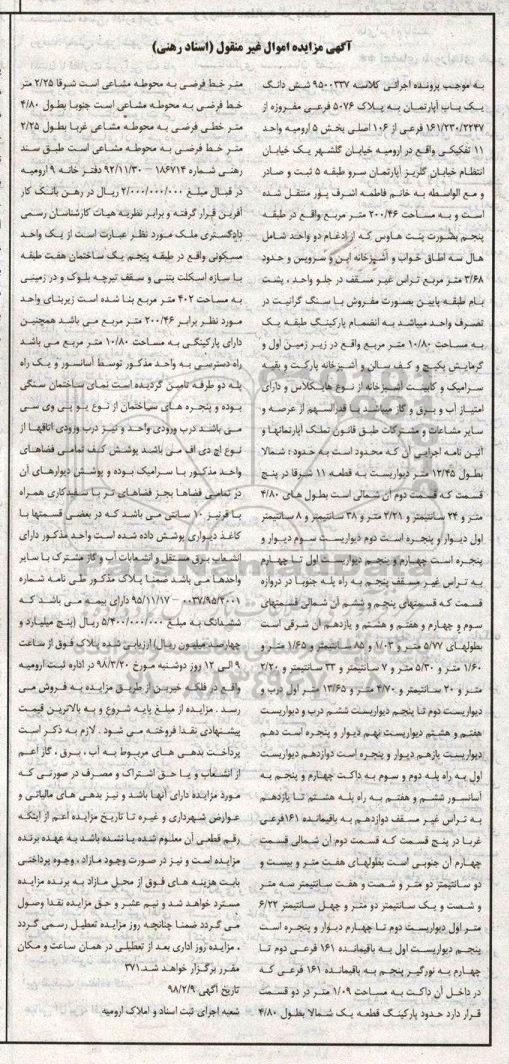 آگهی مزایده اموال غیر منقول (اسناد رهنی)
به موجب پرونده اجرائی کلاسه ۹۵۰۰۳۳۷ شش دانگ
یک باب آپارتمان به پلاک ۵۰۷۶ فرعی مفروزه از
۱۶۱/۲۳۰/۲۲۴۷ فرعی از ۱۰۶ اصلی بخش ۵ ارومیه واحد
۱۱ تفکیکی واقع در ارومیه خیابان گلشهر یک خیابان
انتظام خیابان گلریز آپارتمان سرو طبقه ۵ ثبت و صادر
و مع الواسطه به خانم فاطمه اشرف پور منتقل شده
است و به مساحت ۲۰۰/۴۶ متر مربع واقع در طبقه
پنجم بصورت پنت هاوس که از ادغام دو واحد شامل
هال سه اطاق خواب و آشپزخانه اپن و سرویس و حدود
۳/۶۸ متر مربع تراس غیر مسقف در جلو واحد ، پشت
بام طبقه پایین بصورت مفروش با سنگ گرانیت در
تصرف واحد میباشد به انضمام پارکینگ طبقه یک
به مساحت ۱۰/۸۰ متر مربع واقع در زیر زمین اول و
گرمایش پکیج و کف سالن و آشپزخانه پارکت و بقیه
سرامیک و کابینت آشپزخانه از نوع هایگلاس و دارای
امتیاز آب و برق و گاز میباشد با قدرالسهم از عرصه و
سایر مشاعات و مشترکات طبق قانون تملک آپارتمانها و
آئین نامه اجرایی آن که محدود است به حدود : شمالا
بطول ۱۲/۴۵ متر دیواریست به قطعه ۱۱ شرقا در پنج
قسمت که قسمت دوم آن شمالی است بطول های ۴/۸۰
متر و ۲۴ سانتیمتر و ۲/۲۱ متر و ۳۸ سانتیمتر و ۸ سانتیمتر
اول دیوار و پنجره است دوم دیواریست سوم دیوار و
پنجره است چهارم و پنجم دیواریست اول تا چهارم
به تراس غیر مسقف پنجم به راه پله جنوبا در دروازه
قسمت که قسمتهای پنجم و ششم آن شمالی قسمتهای
سوم و چهارم و هفتم و هشتم و یازدهم آن شرقی است
بطولهای ۵/۷۷ متر و ۱/۰۳ و ۸۵ سانتیمتر و ۱/۶۵ متر و
۱/۶۰ متر و ۵/۳۰ متر و ۷ سانتیمتر و ۳۳ سانتیمتر و ۲/۲۰
متر و ۲۰ سانتیمتر و ۴/۷۰ متر و ۱۳/۶۵ متر اول درب و
دیواریست دوم تا پنجم دیواریست ششم درب و دیواریست
هفتم و هشتم دیواریست نهم دیوار و پنجره است دهم
دیواریست یازدهم دیوار و پنجره است دوازدهم دیواریست
اول به راه پله دوم و سوم به داکت چهارم و پنجم به
آسانسور ششم و هفتم به راه پله هشتم تا یازدهم
به تراس غیر مسقف دوازدهم به باقیمانده ۱۶۱ فرعی
غربا در پنج قسمت که قسمت دوم آن شمالی قسمت
چهارم آن جنوبی است بطولهای هفت متر و بیست و
دو سانتیمتر دو متر و شصت و هفت سانتیمتر سه متر
و شصت و یک سانتیمتر دو متر و چهل سانتیمتر ۶/۲۲
متر اول دیواریست دوم تا چهارم دیوار و پنجره است
پنجم دیواریست اول به باقیمانده ۱۶۱ فرعی دوم تا
چهارم به نورگیر پنجم به باقیمانده ۱۶۱ فرعی که
در داخل آن داکت به مساحت ۱/۰۹ متر در دو قسمت
قرار دارد حدود پارکینگ قطعه یک شمالا بطول ۴/۸۰
متر خط فرضی به محوطه مشاعی است شرقا ۲/۲۵ متر
خط فرضی به محوطه مشاعی است جنوبا بطول ۴/۸۰
متر خطی فرضی به محوطه مشاعی غربا بطول ۲/۲۵
متر خط فرضی به محوطه مشاعی است طبق سند
رهنی شماره ۱۸۶۷۱۴ – ۹۲/۱۱/۳۰ دفتر خانه ۹ ارومیه
در قبال مبلغ ۲/۰۰۰/۰۰۰/۰۰۰ ریال در رهن بانک کار
آفرین قرار گرفته و برابر نظریه هیات کارشناسان رسمی
دادگستری ملک مورد نظر عبارت است از یک واحد
مسکونی واقع در طبقه پنجم یک ساختمان هفت طبقه
با سازه اسکلت بتنی و سقف تیرچه بلوک و در زمینی
به مساحت ۴۰۲ متر مربع بنا شده است زیربنای واحد
مورد نظر برابر ۲۰۰/۴۶ متر مربع می باشد همچنین
دارای پارکینگی به مساحت ۱۰/۸۰ متر مربع می باشد
راه دسترسی به واحد مذکور توسط آسانسور و یک راه
پله دو طرفه تامین گردیده است نمای ساختمان سنگی
بوده و پنجره های ساختمان از نوع یو پی وی سی
می باشد درب ورودی واحد و نیز درب ورودی اتاقها از
نوع اچ دی اف می باشد پوشش کف تمامی فضاهای
واحد مذکور با سرامیک بوده و پوشش دیوارهای آن
در تمامی فضاها بجز فضاهای تر با سفیدکاری همراه
با قرنیز ۱۰ سانتی می باشد که در بعضی قسمتها با
کاغذ دیواری پوشش داده شده است واحد مذکور دارای
انشعاب برق مستقل و انشعابات آب و گاز مشترک با سایر
واحدها می باشد ضمنا پلاک مذکور طی نامه شماره
۰۰۳۷/۹۵/۲۰۰۱ – ۹۵/۱۱/۱۷ دارای بیمه می باشد که
ششدانگ به مبلغ ۵/۴۰۰/۰۰۰/۰۰۰ ریال (پنج میلیارد و
چهارصد میلیون ریال) ارزیابی شده پلاک فوق از ساعت
۹ الی ۱۲ روز دوشنبه مورخ ۹۸/۳/۲۰ در اداره ثبت ارومیه
واقع در فلکه خیربن از طریق مزایده به فروش می
رسد . مزایده از مبلغ پایه شروع و به بالاترین قیمت
پیشنهادی نقدا فروخته می شود . لازم به ذکر است
پرداخت بدهی های مربوط به آب ، برق ، گاز اعم
از انشعاب و یا حق اشتراک و مصرف در صورتی که
مورد مزایده دارای آنها باشد و نیز بدهی های مالیاتی و
عوارض شهرداری و غیره تا تاریخ مزایده اعم از اینکه
رقم قطعی آن معلوم شده یا نشده باشد به عهده برنده
مزایده است و نیز در صورت وجود مازاد ، وجوه پرداختی
بابت هزینه های فوق از محل مازاد به برنده مزایده
مسترد خواهد شد و نیم عشر و حق مزایده نقدا وصول
می گردد ضمنا چنانچه روز مزایده تعطیل رسمی گردد
، مزایده روز اداری بعد از تعطیلی در همان ساعت و مکان
مقرر برگزار خواهد شد.۳۷۱
تاریخ آگهی ۹۸/۲/۹
شعبه اجرای ثبت اسناد و املاک ارومیه